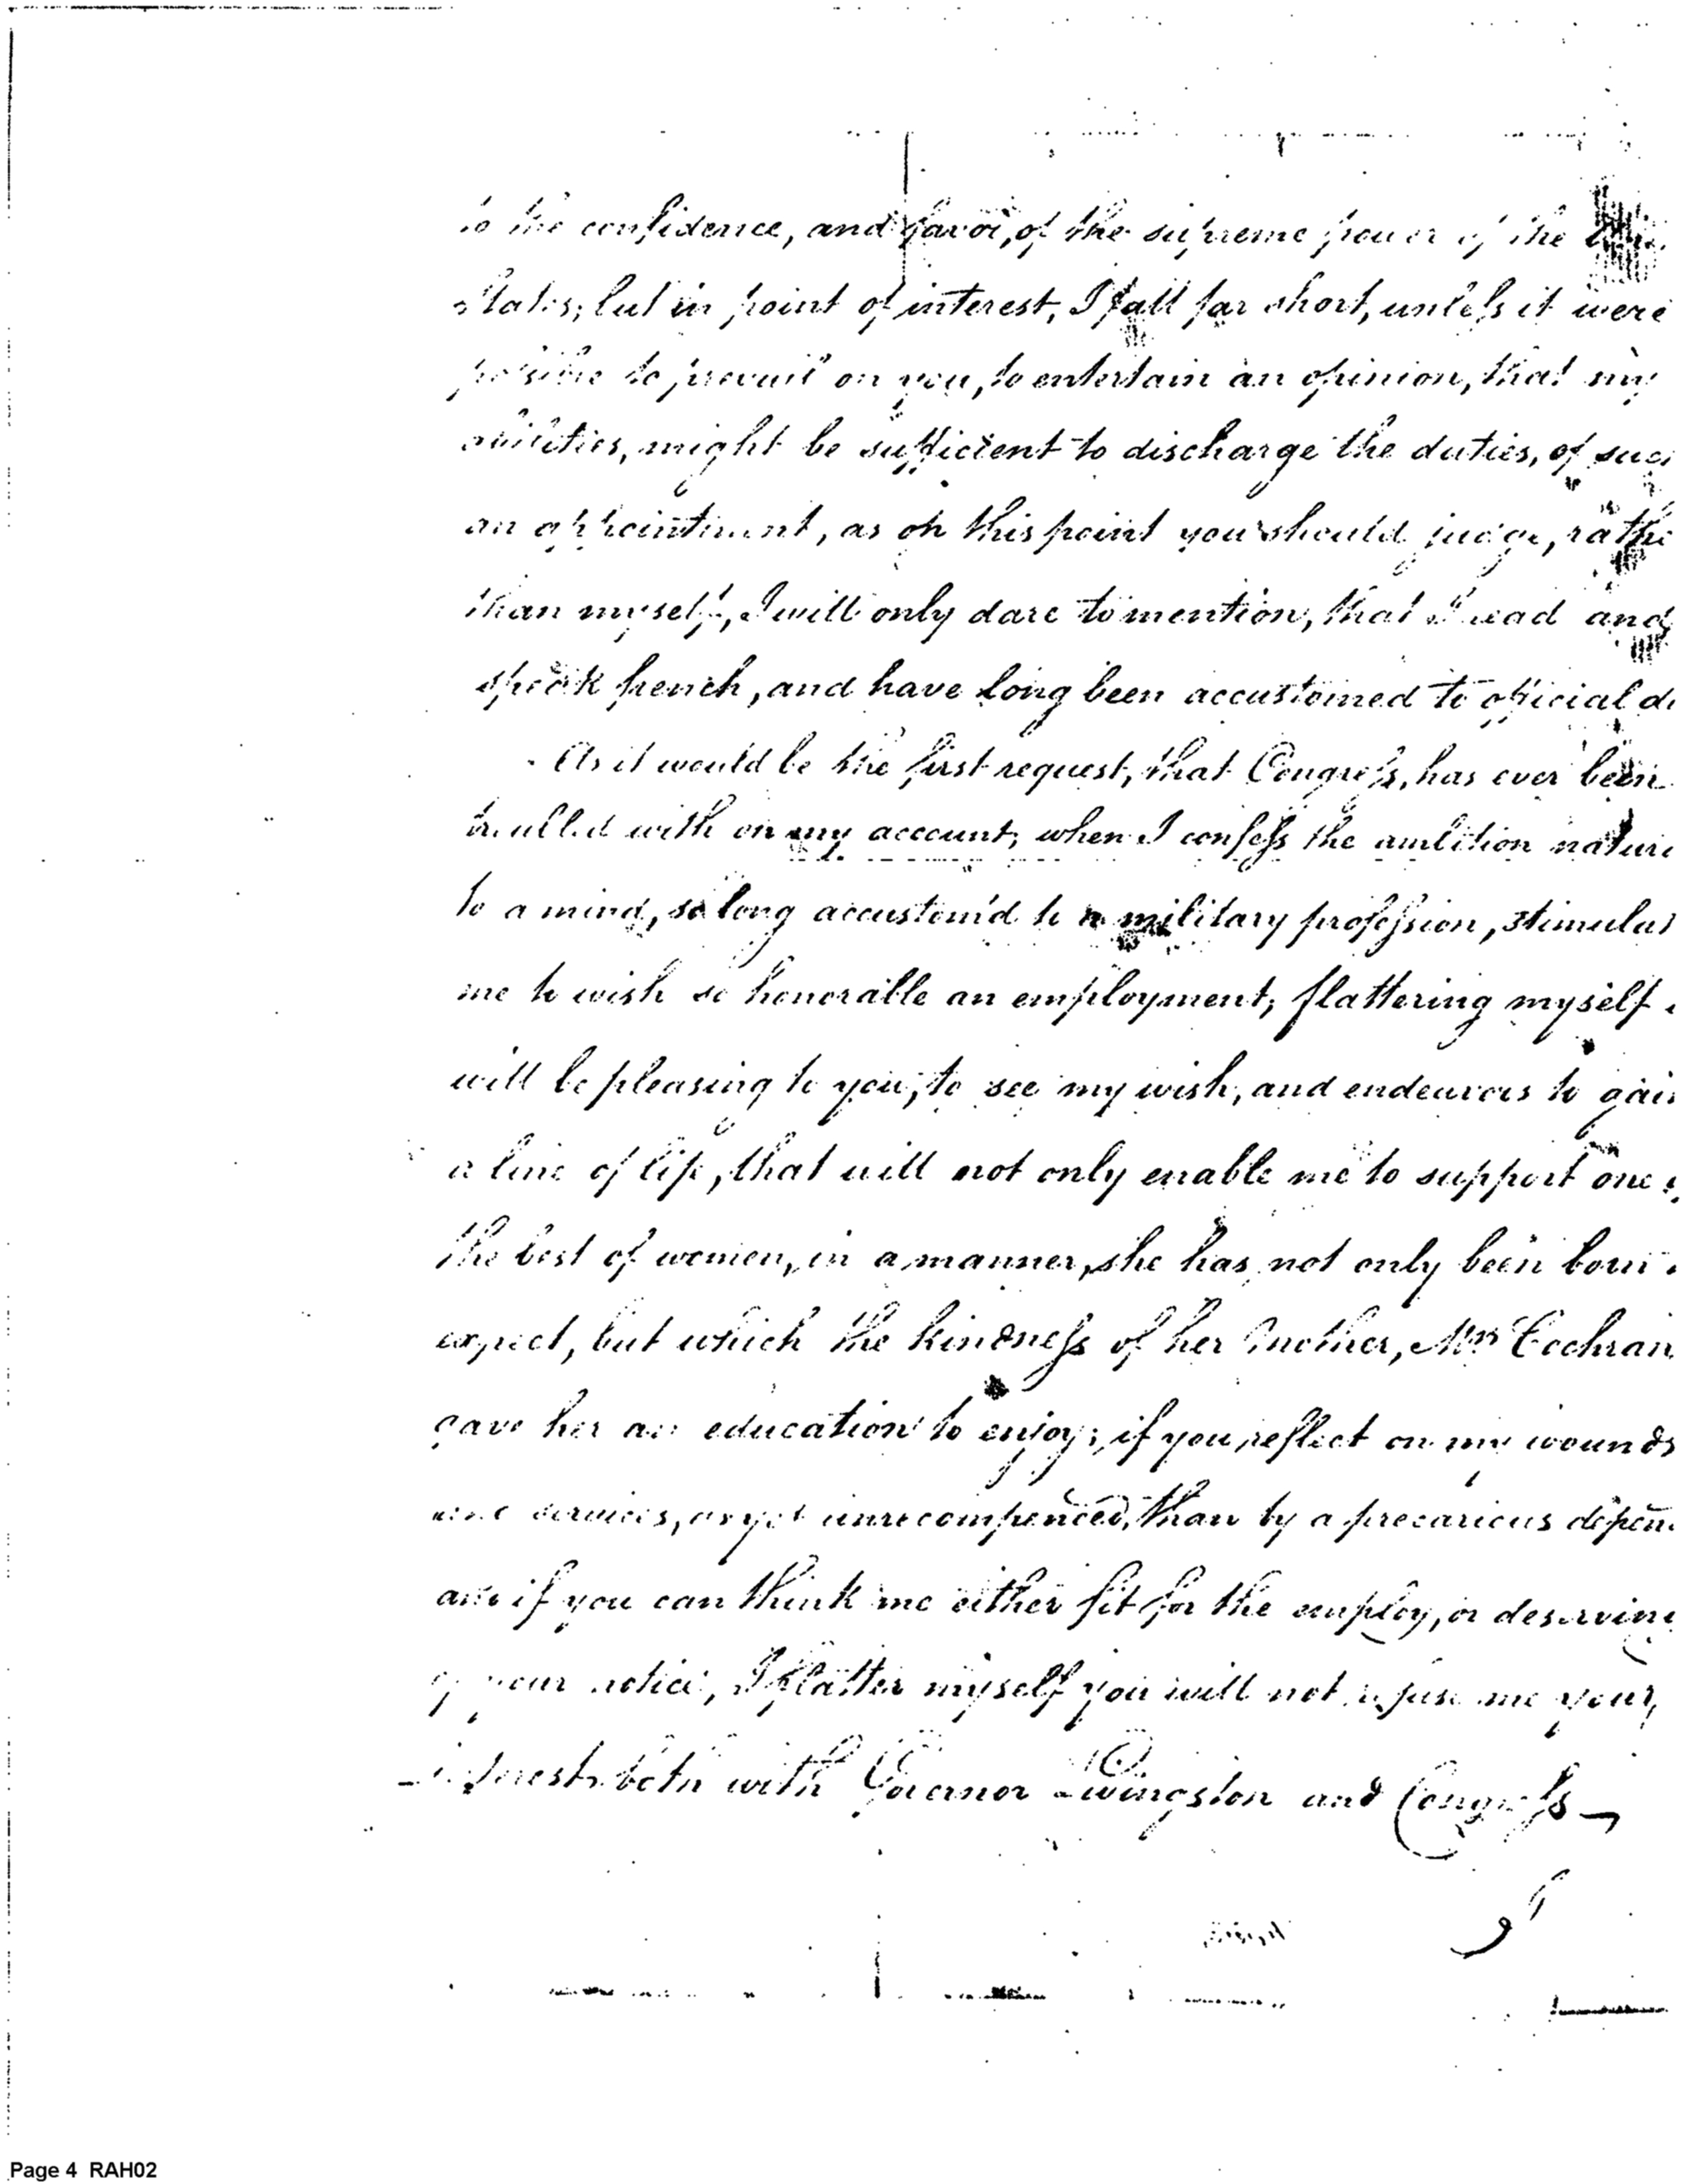 to the confidence, and favor, of the supreme power of the
States; but in point of interest, I fall far short, unless it were
possible to prevail on you, to entertain an opinion, that my
abilities, might be sufficient to discharge the duties, of such
an appointment, as on this point you should judge, rathe
than myself, I will only dare to mention, that I read and
speak french, and have long been accustomed to official d
As it would be the first request, that Congress, has ever been
troubled with on my account, when I confess the ambition nature
to a mind, so long accustom'd to a military profession, stimulat
me to wish so honorable an employment; flattering myself
will be pleasing to you, to see my wish, and endeavors to gain
a line of life, that will not only enable me to support one
the best of women, in a manner, she has not only been born
expect, but which the kindness of her Mother, Mrs Cochran
gave her an education to enjoy; if you reflect on my wounds
and services, as yet unrecompenced, than by a precarious depen
and if you can think me either fit for the employ, or deserving
of your notice, I flatter myself you will not refuse me your
interest both with Governor Livingston and Congress
Page 4 RAH02